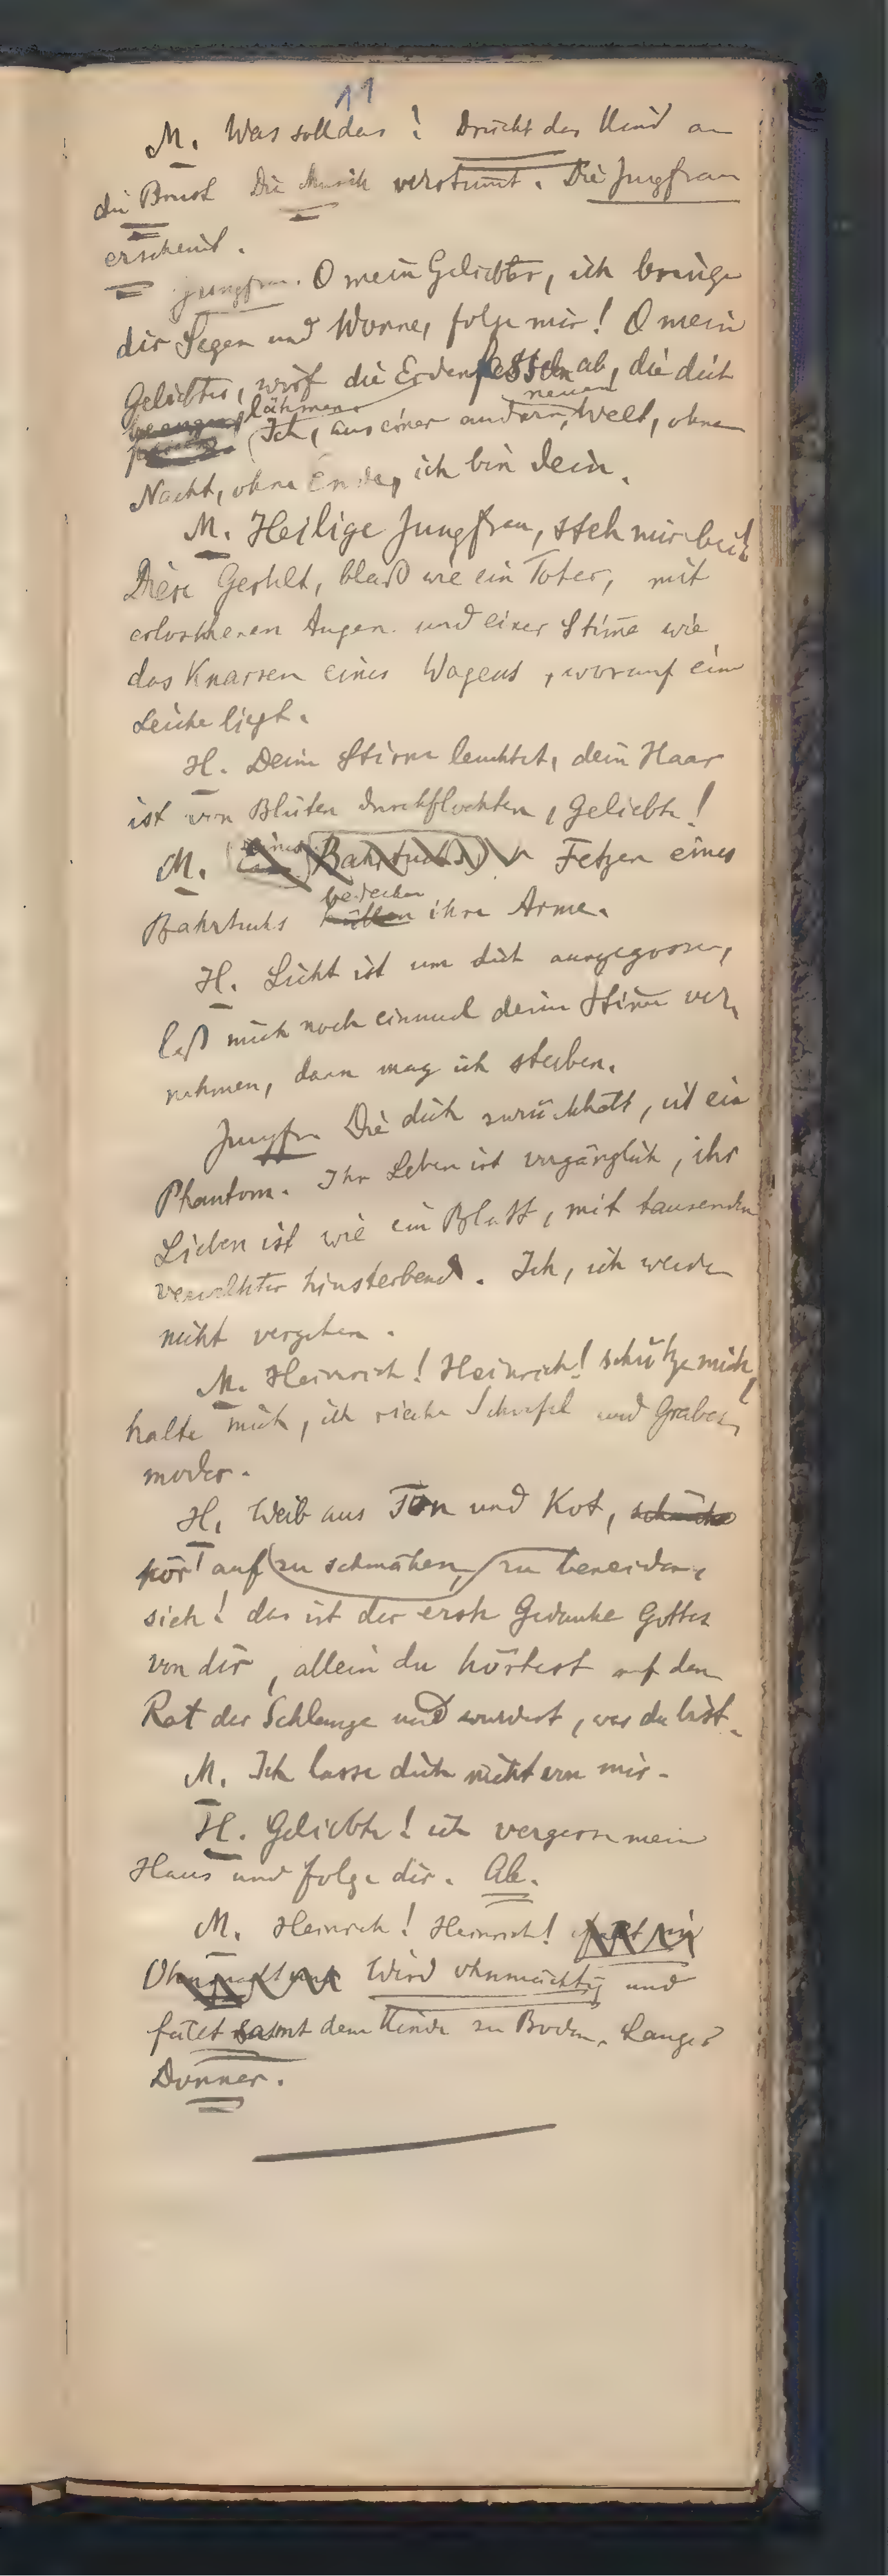 11
M. Was soll das! Drückt das Kind an
die Brust Die Musik verstummt. Die Jungfrau
erscheint.
Jungfr. O mein Geliebter, ich bringe
dir Segen und Wonne, folge mir! O mein
Geliebter, wirf die Erdenfesseln ab, die dich
lähmen neuen
Ich, aus einer andern, Welt, ohne
Nacht, ohne Ende, ich bin dein.
M. Heilige Jungfrau, steh mir bei!
Diese Gestalt, blaß wie ein Toter, mit
erloschenen Augen und einer Stime wie
das Knarren eines Wagens, worauf eine
Leiche liegt.
H. Deine Stirne leuchtet, dein Haar
ist von Blüten durchflochten, Geliebte!
M. Bahrtuchs Fetzen eines
bedecken
Bahrtuchs hüllen ihre Arme.
H. Licht ist um dich ausgegossen,
laß mich noch einmal deine Stime ver-
nehmen, dann mag ich sterben.
Jungfr Die dich zurückhält, ist ein
Phantom. Ihr Leben ist vergänglich, ihr
Lieben ist wie ein Blatt, mit tausenden
verwelkter hinsterbend. Ich, ich werde
nicht vergehen.
M. Heinrich! Heinrich! schütze mich,
halte mich, ich rieche Schwefel und Grabes-
moder.
H. Weib aus Ton und Kot,
hör' auf zu schmähen, zu beneiden,
sieh! das ist der erste Gedanke Gottes
von dir, allein du hörtest auf den
Rat der Schlange und wurdest, was du bist.
M. Ich lasse dich nicht von mir.
H. Geliebte! ich vergesse mein
Haus und folge dir. Ab.
M. Heinrich! Heinrich!
Wird ohnmächtig und
fällt samt dem Kinde zu Boden. Langer
Donner.